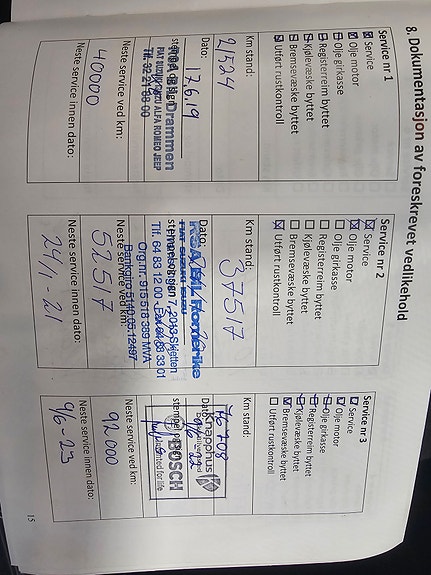 8. Dokumentasjon av foreskrevet vedlikehold
Service nr 1
Service
Olje motor
Olje girkasse
Registerreim byttet
Kjølevæske byttet
Bremsevæske byttet
Utført rustkontroll
Km stand:
21524
Dato:
17.6.19
RSA Bil Drammen
FIAT SUZUKI ISUZU ALFA ROMEO JEEP
Neste service ved km:
40000
Neste service innen dato:
Service nr 2
Service
Olje motor
Olje girkasse
Registerreim byttet
Kjølevæske byttet
Bremsevæske byttet
Utført rustkontroll
Km stand:
37517
Dato:
RSA BIL Romerike
2013 Skjetten
Tlf. 64 83 12 00
33 01
Org.nr. 915 518 389 MVA
Bankgiro 5140.05.12497
Neste service ved km:
52517
Neste service innen dato:
24/1-21
Service nr 3
Service
Olje motor
Olje girkasse
Registerreim byttet
Kjølevæske byttet
Bremsevæske byttet
Utført rustkontroll
Km stand:
76708
Dato:
9/6-22
Knapphus
BOSCH
Invented for life
Neste service ved km:
92000
Neste service innen dato:
9/6-23
15